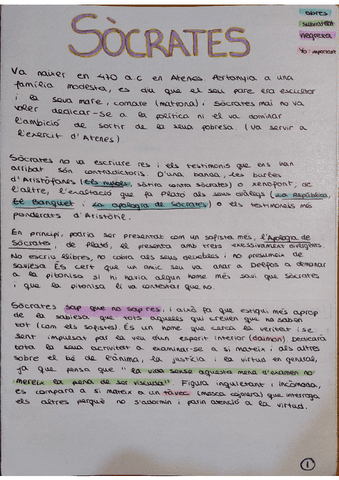 obres
subratllat
negreta
Yo: important
SÒCRATES
Va naixer en 470 a.c en Atenes. Pertanyia a una
família modesta, es diu que el seu pare era escultor
i la seua mare, comare (matrona). Sòcrates mai no va
voler dedicar-se a la política ni el va dominar
l'ambició de sortir de la seua pobresa (va servir a
l'exèrcit d'Atenes)
Sòcrates no va escriure res i els testimonis que ens han
arribat són contradictoris. D'una banda, les burles
d'Aristòfanes (els núvols, sàtira contra Sòcrates) o Xenofont, de
l'altre, l'exaltació que fa Plató als seus diàlegs (La República,
El Banquet i La apologia de Sòcrates) o els testimonis més
ponderats d'Aristòtil.
En principi, podria ser presentat com un sofista més, l'Apologia de
Sòcrates, de Plató, el presenta amb trets excessivament divergens.
No escriu llibres, no cobra als seus deixebles i no presumeix de
saviesa. Es cert que un amic seu va anar a Delfos a demanar
a la pitonisa si hi havia algun home més savi que Sòcrates
i que la pitonisa li va contestar que no.
Sòcrates sap que no sap res, i això fa que estigui més aprop
de la saviesa que tots aquells que creuen que ho saben
tot (com els sofistes). És un home que cerca la veritat i se
sent impulsat per la veu d'un esperit interior (daimon) dedicarà
tota la seua activitat a examinar-se a si mateix i als altres
sobre el bé de l'ànima, la justícia i la virtut en general,
ja que pensa que "la vida sense aquesta mena d'examen no
mereix la pena de ser viscuda". Figura inquietant i incòmoda,
es compara a si mateix a un tàvec (mosca collonera) que interroga
els altres perquè no s'adormin i parin atenció a la virtud.
1